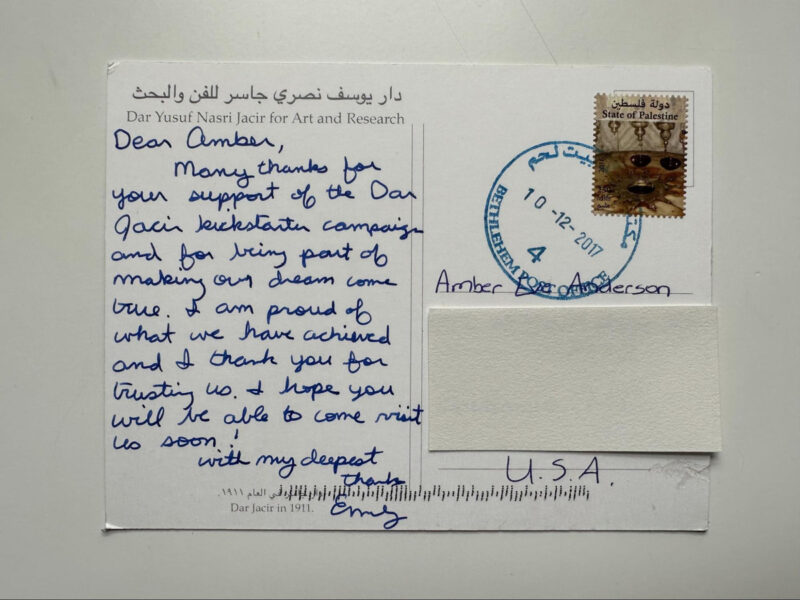 دار يوسف نصري جاسر للفن والبحث
Dar Yusuf Nasri Jacir for Art and Research
Dear Amber,
Many thanks for
your support of the Dar
Jacir kickstarter campaign
and for being part of
making our dream come
true. I am proud of
what we have achieved
and I thank you for
trusting us. I hope you
will be able to come visit
us soon!
with my deepest
thanks
Emily
في العام ١٩١١.
Dar Jacir in 1911.
دولة فلسطين
State of Palestine
بيت لحم
10-12-2017
4
BETHLEHEM POST OFFICE
Amber Lee Anderson
U.S.A.